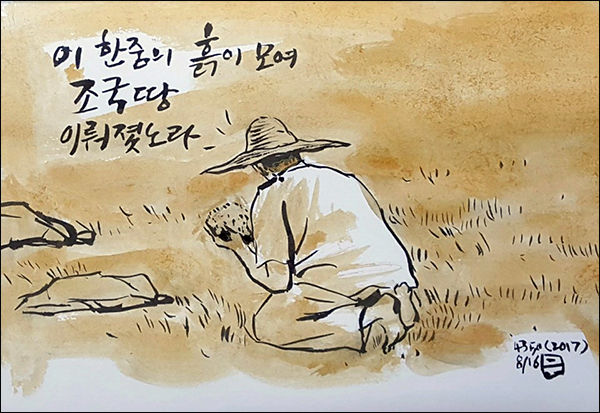 이 한줌의 흙이 모여
조국땅
이뤄졌노라
4350(2017)
8/16